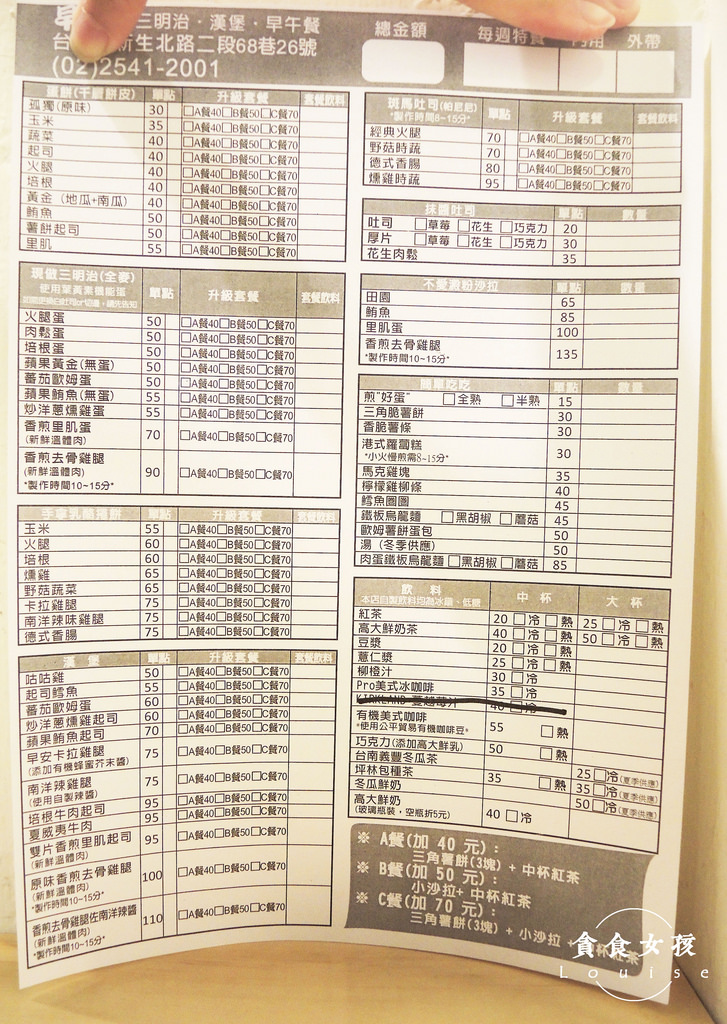 三明治·漢堡·早午餐
新生北路二段68巷26號
(02)2541-2001
總金額
每週特餐 內用 外帶
蛋餅(千層餅皮) 單點 升級套餐 套餐飲料
孤獨(原味) 30 □A餐40□B餐50□C餐70
玉米 35 □A餐40□B餐50□C餐70
蔬菜 40 □A餐40□B餐50□C餐70
起司 40 □A餐40□B餐50□C餐70
火腿 40 □A餐40□B餐50□C餐70
培根 40 □A餐40□B餐50□C餐70
黃金(地瓜+南瓜) 40 □A餐40□B餐50□C餐70
鮪魚 50 □A餐40□B餐50□C餐70
薯餅起司 50 □A餐40□B餐50□C餐70
里肌 55 □A餐40□B餐50□C餐70
現做三明治(全麥) 單點 升級套餐 套餐飲料
使用葉黃素機能蛋
火腿蛋 50 □A餐40□B餐50□C餐70
肉鬆蛋 50 □A餐40□B餐50□C餐70
培根蛋 50 □A餐40□B餐50□C餐70
蘋果黃金(無蛋) 50 □A餐40□B餐50□C餐70
蕃茄歐姆蛋 50 □A餐40□B餐50□C餐70
蘋果鮪魚(無蛋) 55 □A餐40□B餐50□C餐70
炒洋蔥燻雞蛋 55 □A餐40□B餐50□C餐70
香煎里肌蛋 70 □A餐40□B餐50□C餐70
(新鮮溫體肉)
香煎去骨雞腿 90 □A餐40□B餐50□C餐70
(新鮮溫體肉)
*製作時間10~15分*
手拿乳酪捲餅 單點 升級套餐 套餐飲料
玉米 55 □A餐40□B餐50□C餐70
火腿 60 □A餐40□B餐50□C餐70
培根 60 □A餐40□B餐50□C餐70
燻雞 65 □A餐40□B餐50□C餐70
野菇蔬菜 65 □A餐40□B餐50□C餐70
卡拉雞腿 75 □A餐40□B餐50□C餐70
南洋辣味雞腿 75 □A餐40□B餐50□C餐70
德式香腸 75 □A餐40□B餐50□C餐70
漢堡 單點 升級套餐 套餐飲料
咕咕雞 50 □A餐40□B餐50□C餐70
起司鱈魚 55 □A餐40□B餐50□C餐70
蕃茄歐姆蛋 60 □A餐40□B餐50□C餐70
炒洋蔥燻雞起司 60 □A餐40□B餐50□C餐70
蘋果鮪魚起司 70 □A餐40□B餐50□C餐70
早安卡拉雞腿 75 □A餐40□B餐50□C餐70
(添加有機蜂蜜芥末醬)
南洋辣雞腿 75 □A餐40□B餐50□C餐70
(使用自製辣醬)
培根牛肉起司 95 □A餐40□B餐50□C餐70
夏威夷牛肉 95 □A餐40□B餐50□C餐70
雙片香煎里肌起司 95 □A餐40□B餐50□C餐70
(新鮮溫體肉)
原味香煎去骨雞腿 100 □A餐40□B餐50□C餐70
(新鮮溫體肉)
*製作時間10~15分*
香煎去骨雞腿佐南洋辣醬 110 □A餐40□B餐50□C餐70
(新鮮溫體肉)
*製作時間10~15分*
斑馬吐司(帕尼尼) 單點 升級套餐 套餐飲料
*製作時間8~15分*
經典火腿 70 □A餐40□B餐50□C餐70
野菇時蔬 70 □A餐40□B餐50□C餐70
德式香腸 80 □A餐40□B餐50□C餐70
燻雞時蔬 95 □A餐40□B餐50□C餐70
抹醬吐司 單點 數量
吐司 □草莓 □花生 □巧克力 20
厚片 □草莓 □花生 □巧克力 30
花生肉鬆 35
不愛澱粉沙拉 單點 數量
田園 65
鮪魚 85
里肌蛋 100
香煎去骨雞腿 135
*製作時間10~15分*
簡單吃吃 單點 數量
煎"好蛋" □全熟 □半熟 15
三角脆薯餅 30
香脆薯條 30
港式蘿蔔糕 30
*小火慢煎需8~15分*
馬克雞塊 35
檸檬雞柳條 40
鱈魚圈圈 45
鐵板烏龍麵 □黑胡椒 □蘑菇 45
歐姆薯餅蛋包 50
湯(冬季供應) 50
肉蛋鐵板烏龍麵 □黑胡椒 □蘑菇 85
飲料 中杯 大杯
紅茶 20 □冷 □熱 25 □冷 □熱
高大鮮奶茶 40 □冷 □熱 50 □冷 □熱
豆漿 20 □冷 □熱
薏仁漿 25 □冷 □熱
柳橙汁 30 □冷
Pro美式冰咖啡 35 □冷
KIRKLAND 蔓越莓汁 40 □冷
有機美式咖啡 55 □熱
*使用公平貿易有機咖啡豆*
巧克力(添加高大鮮乳) 50 □熱
台南義豐冬瓜茶 25□冷(夏季供應)
坪林包種茶 35 □熱 35□冷(夏季供應)
冬瓜鮮奶 50□冷(夏季供應)
高大鮮奶 40 □冷
(玻璃瓶裝,空瓶折5元)
※ A餐(加 40 元):
三角薯餅(3塊) + 中杯紅茶
※ B餐(加 50 元):
小沙拉+ 中杯紅茶
※ C餐(加 70 元):
三角薯餅(3塊) + 小沙拉 + 中杯紅茶
貪食女孩
Louise